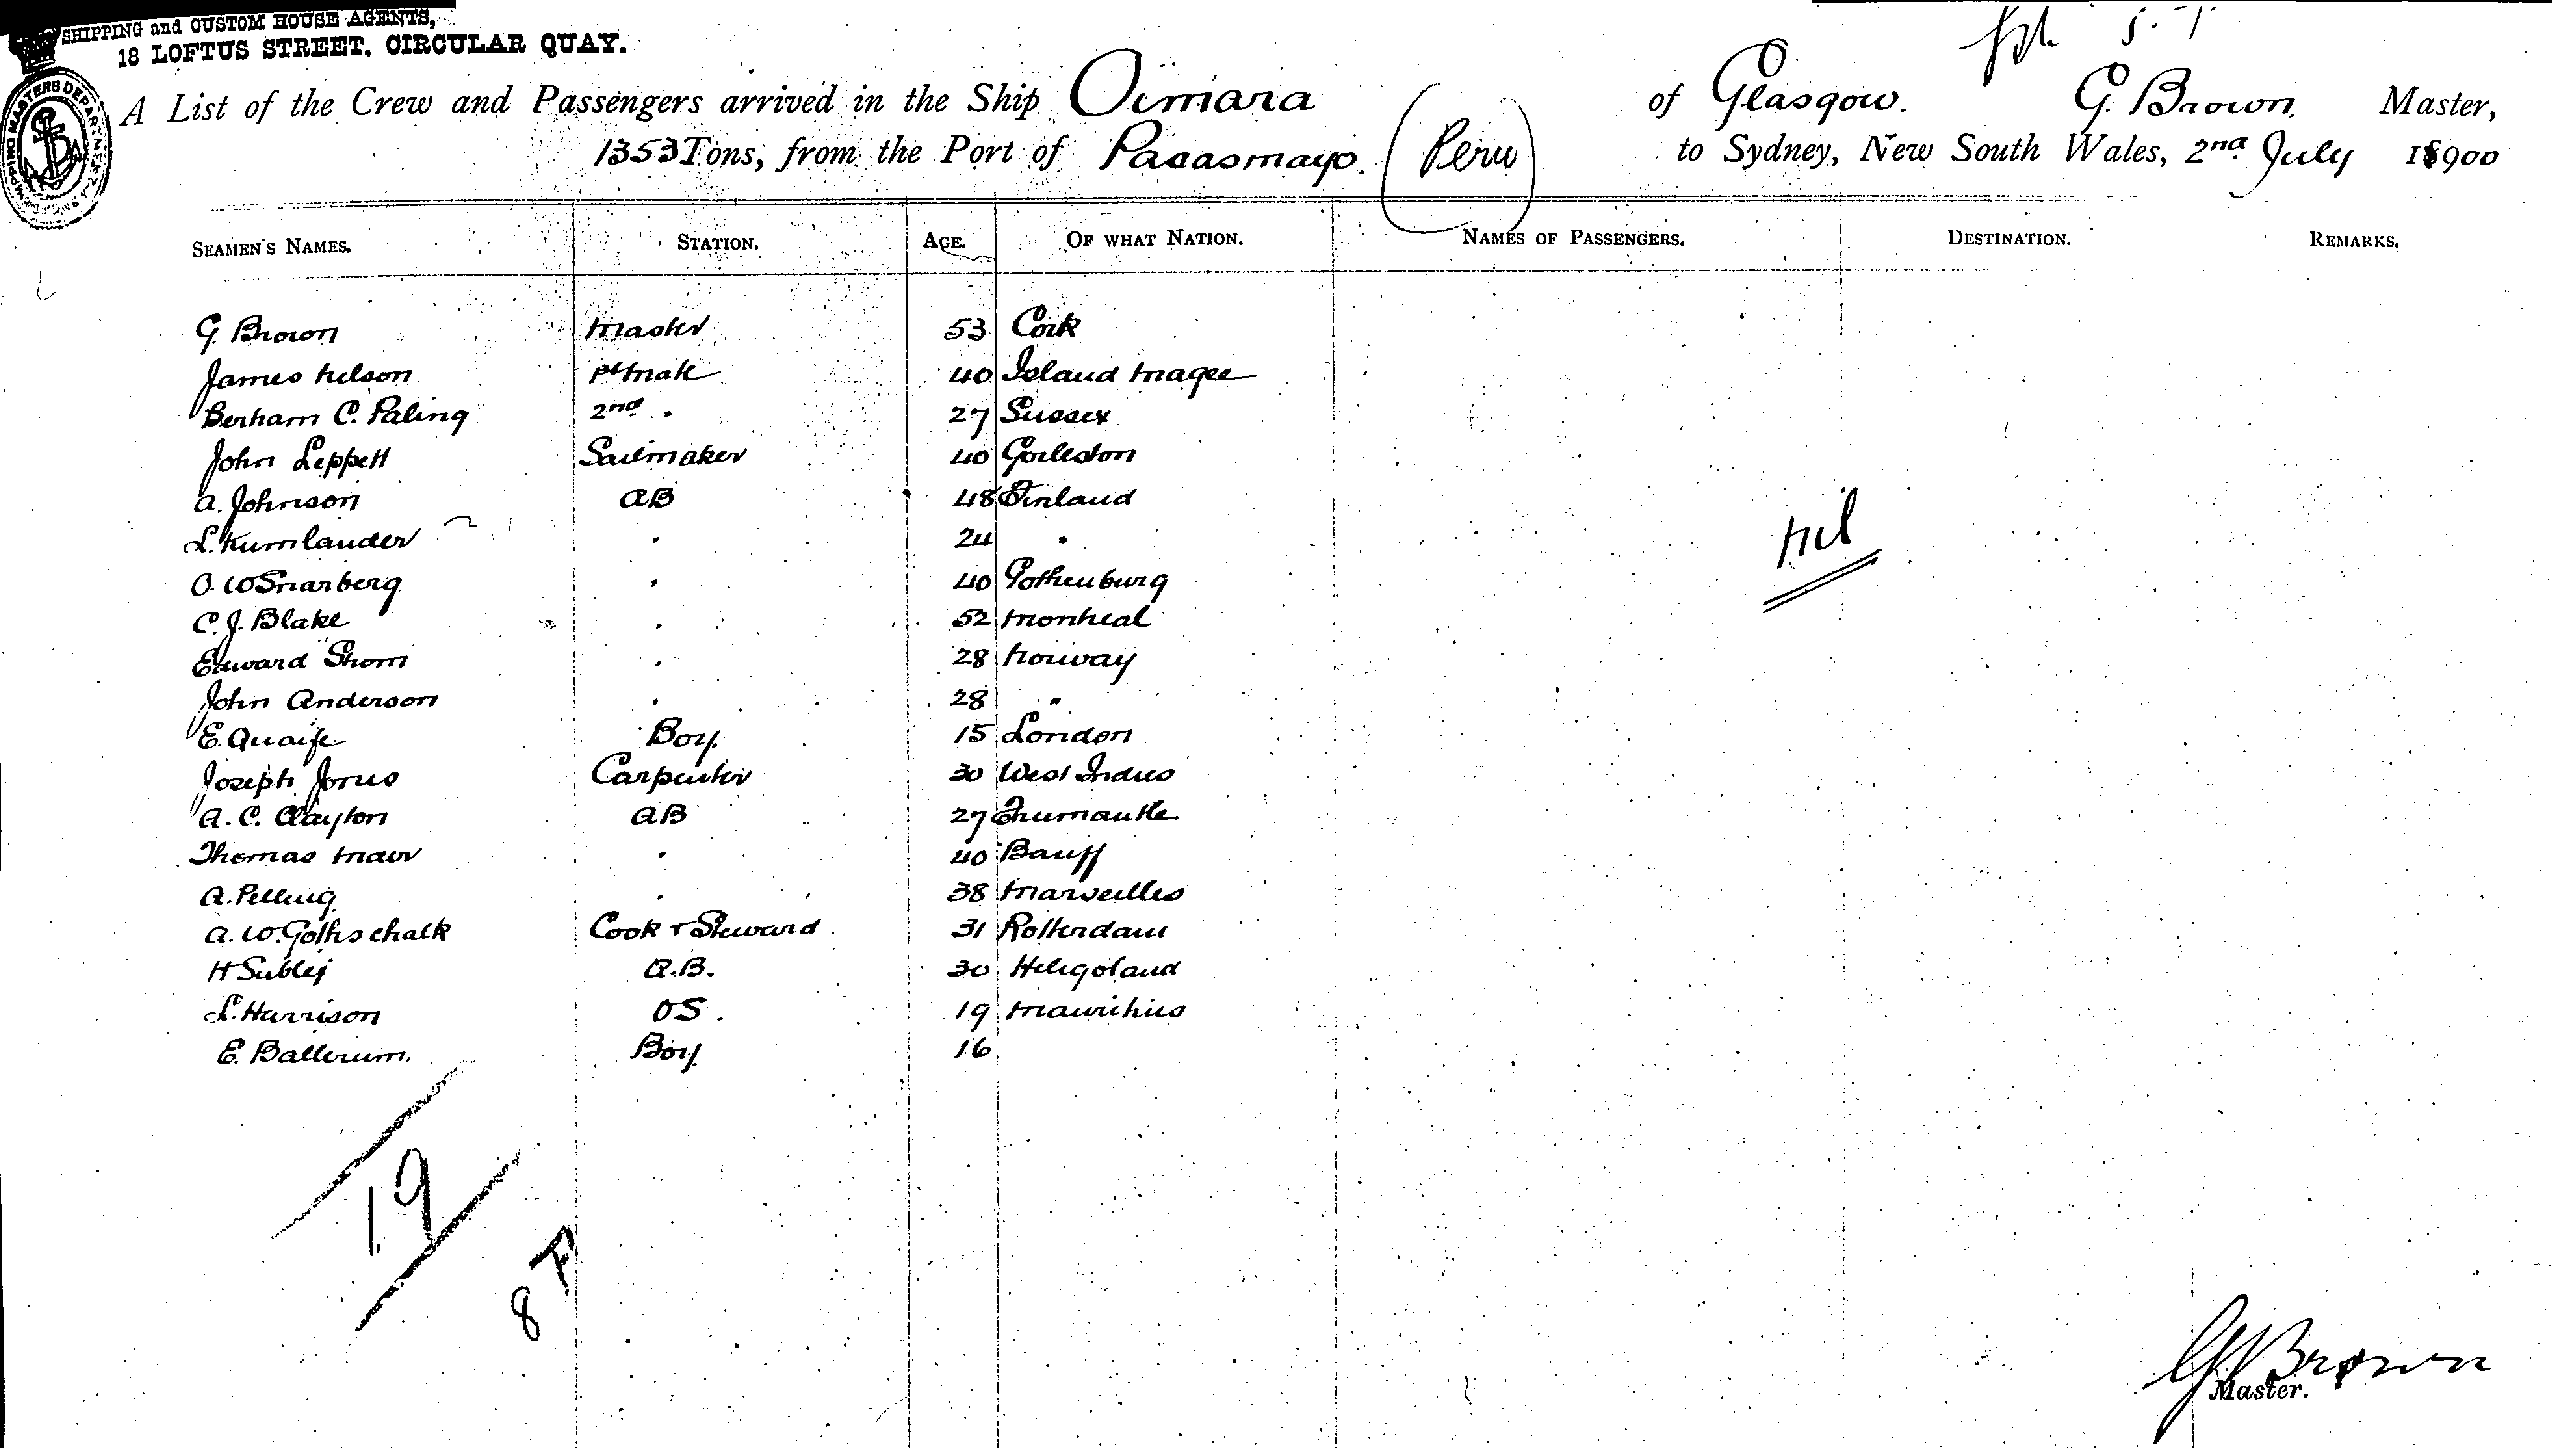 SHIPPING and CUSTOM HOUSE AGENTS,
18 LOFTUS STREET, CIRCULAR QUAY.
A List of the Crew and Passengers arrived in the Ship Oimara of Glasgow. G. Brown. Master,
1353 Tons, from the Port of Pacasmayo. (Peru) to Sydney, New South Wales, 2nd July 18900
SEAMEN'S NAMES. STATION. AGE. OF WHAT NATION. NAMES OF PASSENGERS. DESTINATION. REMARKS.
G. Brown Master 53 Cork
James Nelson 1st Mate 40 Island Magee
C. Paling 2nd " 27 Sussex
John Leppett Sailmaker 40 Gorleston
A. Johnson AB 48 Finland
L. Kumlander " 24 "
O. W Snarberg " 40 Gothenburg
C. J. Blake " 52 Montreal
Edward Strom " 28 Norway
John Anderson " 28 "
E. Quaife Boy. 15 London
Joseph Jones Carpenter 30 West Indies
A. C. Clayton AB 27 Frumantle
Thomas Mair " 40 Banff
A. Pelling " 38 Marseilles
A. W. Gottschalk Cook + Steward 31 Rotterdam
H Subley A.B. 30 Heligoland
L. Harrison OS. 19 Mauritius
E. Ballerum. Boy. 16
Nil
19
8 F
G Brown
Master.